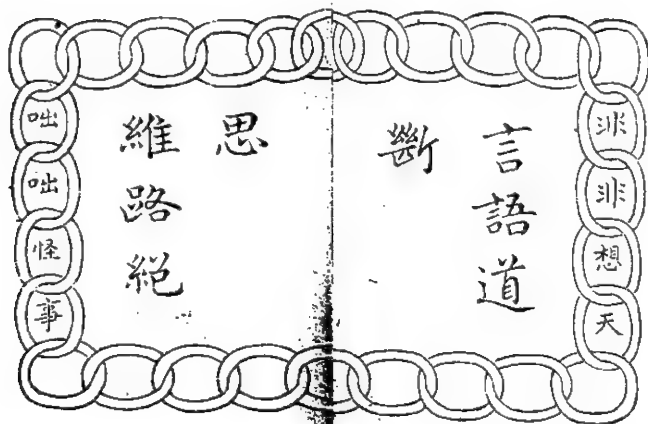 非非想天
言語道
斷
思
維路絕
咄咄怪事